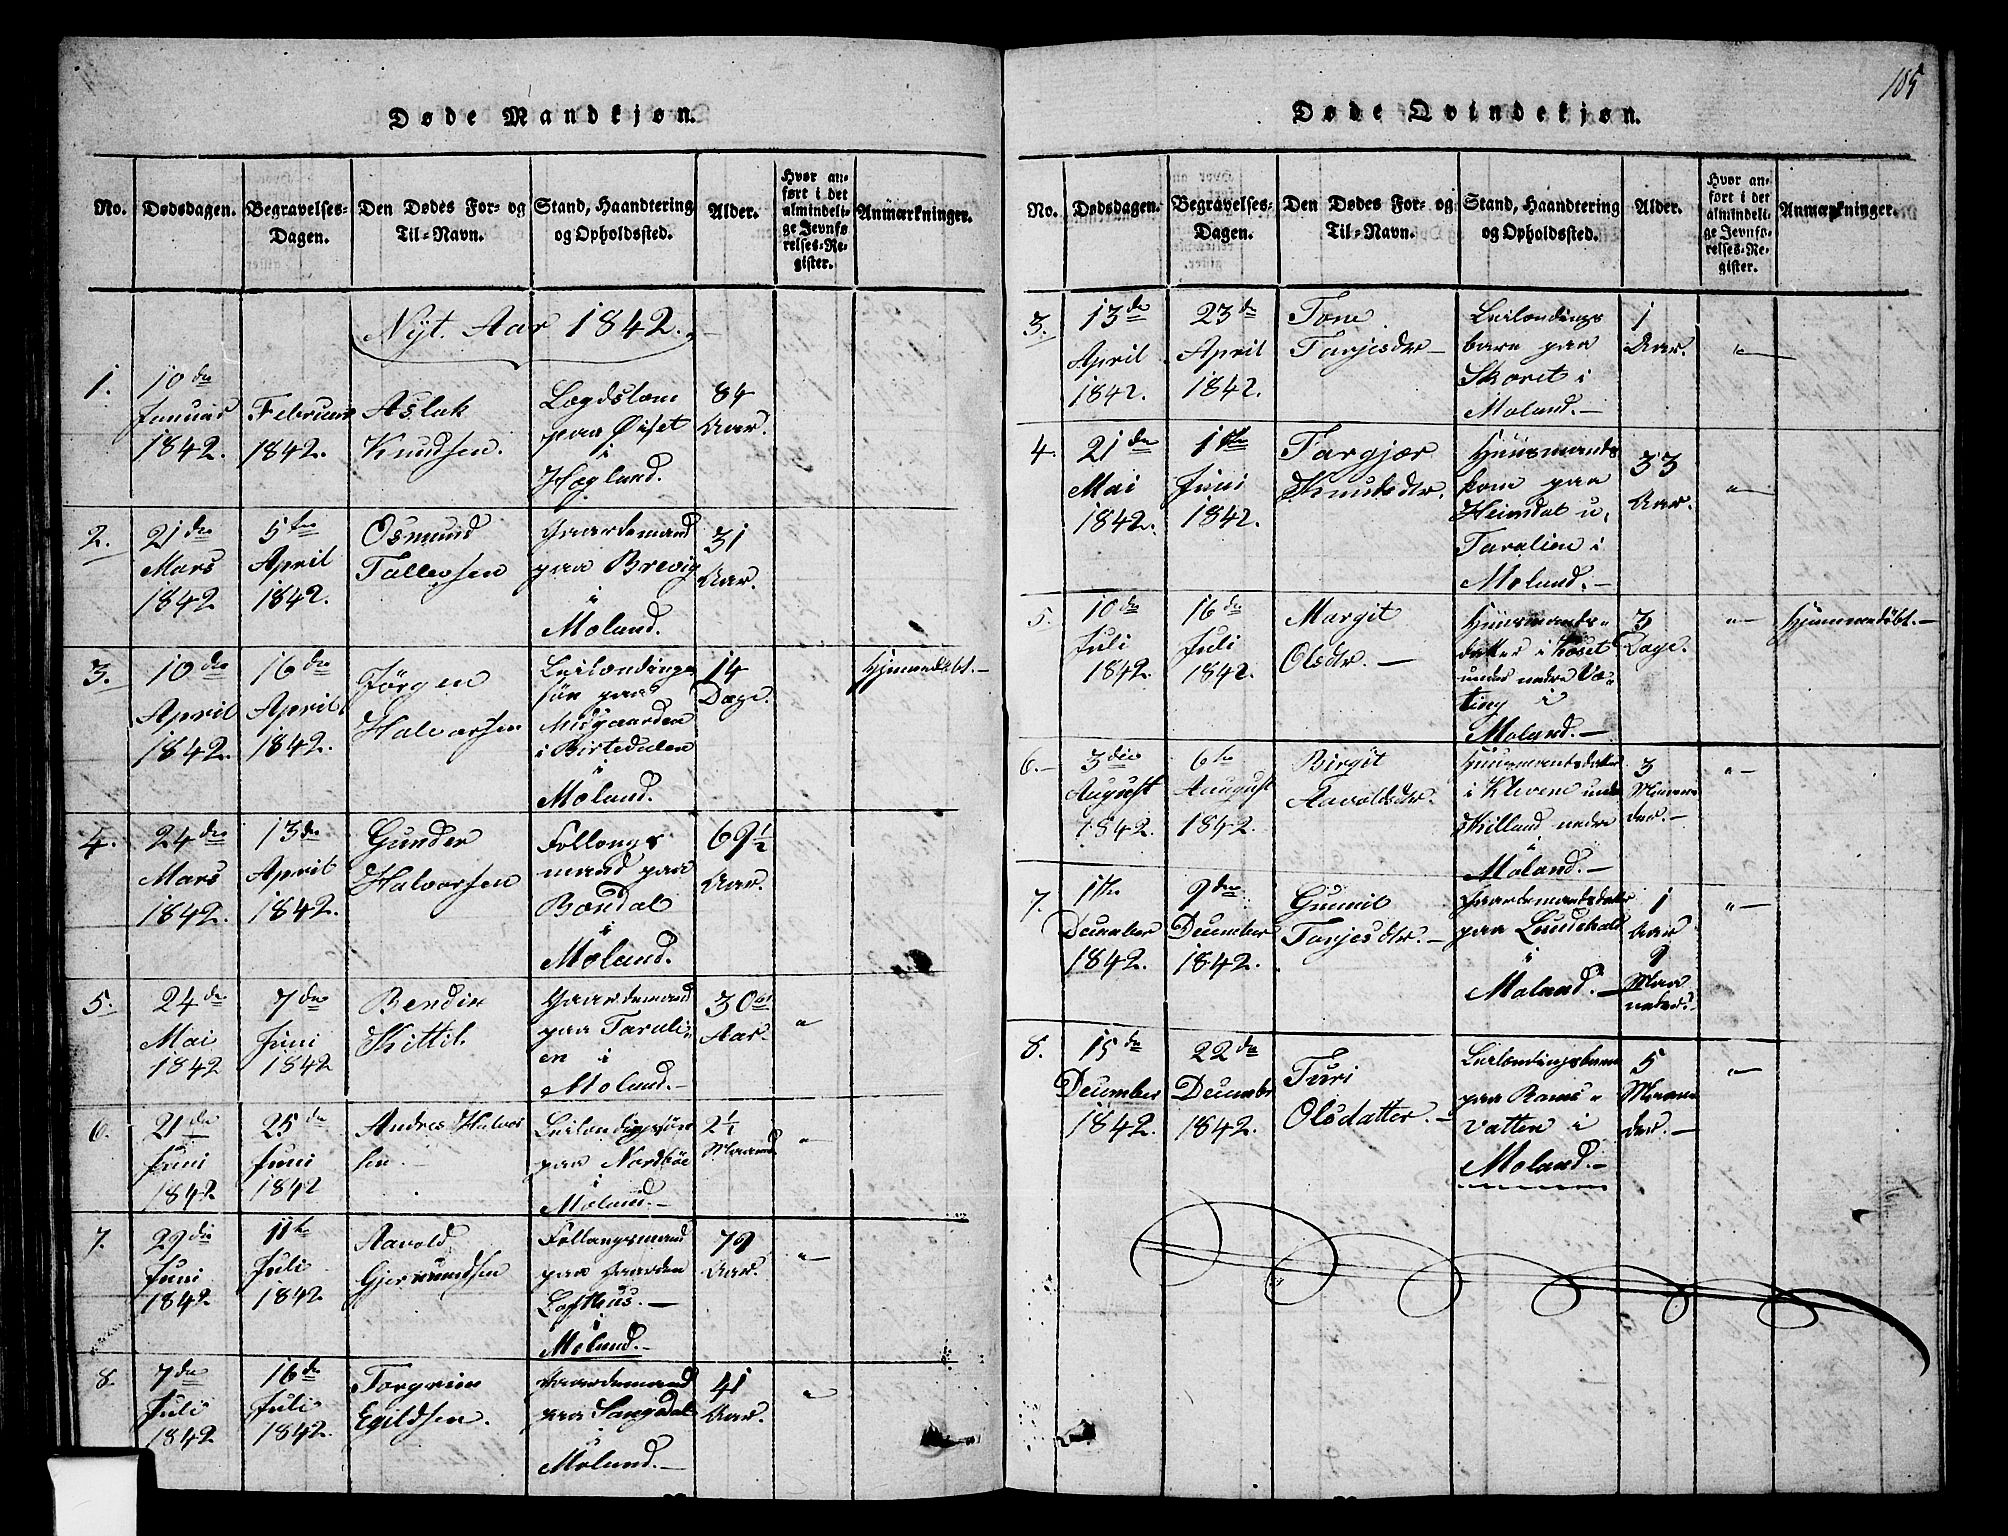 105
Døde Mandkjøn.
No.
Dødsdagen.
Begravelses-
Dagen.
Den Dødes For- og
Til-Navn.
Stand, Haandtering
og Opholdssted.
Alder.
Hvor an-
ført i det
almindeli-
ge Jevnfø-
relses-Re-
gister.
Anmærkninger.
Nyt Aar 1842.
1.
10de
Januar
1842.
Februar
1842.
Aslak
Knudsen.
Lægdslem
paa Øiset
i
Høgland.
84
Aar.
2.
21de
Mars
1842
5te
April
1842.
Osmund
Tallevsen
Gaardemand
paa Brevig
i
Moland.
31
Aar.
3.
10de
April
1842.
16de
April
1842.
Jörgen
Halvorsen
Leilændings
sön paa
Midgaarden
i Birtedalen
i
Moland.
14
Dage.
Hjemmedöbt.-
4.
24de
Mars
1842.
13de
April
1842.
Gunder
Halvorsen
Follougs
mand paa
Bondal
i
Moland.
69½
Aar.
5.
24de
Mai
1842
7de
Juni
1842
Bendix
Kittil
Gaardemand
paa Tarali-
en i
Moland.-
30
Aar.
"
6.
21de
Juni
1842
25de
Juni
1842
Andres Halvor
sen.-
Leilændingssön
paa Nordböe
i
Moland.-
2½
Maaned
"
7.
29de
Juni
1842
11te
Juli
1842
Aavold
Gjermundsen
Follougsmand
paa Gaarden
Lofthus.-
i
Moland.-
79
Aar.
"
8.
7de
Juli
1842
16de
Juli
1842.
Torgrim
Egildsen.
Gaardemand
paa Sangdal
i
Moland.-
41
Aar.
"
Døde Qvindekjøn.
No.
Dødsdagen.
Begravelses-
Dagen.
Den Dødes For- og
Til-Navn.
Stand, Haandtering
og Opholdssted.
Alder.
Hvor an-
ført i det
almindeli-
ge Jevnfø-
relses-Re-
gister.
Anmærkninger.
3.
13de
April
1842.
23de
April
1842.
Tone
Tarjesdr-
Leilændings
barn paa
Skoret i
Moland.-
1
Aar.
"-
4.
21de
Mai
1842.
1ste
Juni
1842.
Targjær
Knutsdr.
Huusmands
kone paa
Heimdal u.
Taralien i
Moland.-
33
Aar.
"-
5.
10de
Juli
1842.
16de
Juli
1842.
Margit
Olsdr.-
Huusmands-
datter i Koset
under nedre Væ-
ting i
Moland.-
3
Dage.
"-
Hjemmedöbt.-
6.-
3die
August
1842.
6te
August
1842.
Birgit
Aavoldsdr.
Huusmandsdatter
i Klevene under
Killand nedre
i
Moland.-
3
Maane
der.-
"-
7.
1ste
December
1842.
9de
December
1842.
Gunnil
Tarjesdtr.-
Gaardemandsdatter
paa Lundehald
i
Moland.-
1
Aar
9
Maa
neder.
"-
8.
15de
December
1842.
22de
December
1842.
Turi
Olsdatter.-
Leilændingsbarn
paa Rams-
vatten i
Moland.-
5
Maane
der.-
"-